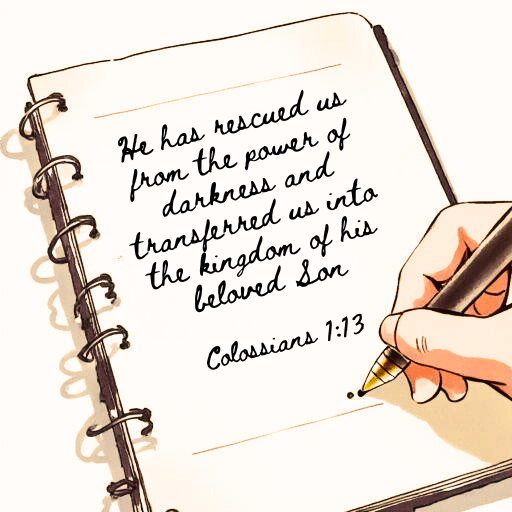 He has rescued us
from the power of
darkness and
transferred us into
the kingdom of his
beloved Son
Colossians 1:13